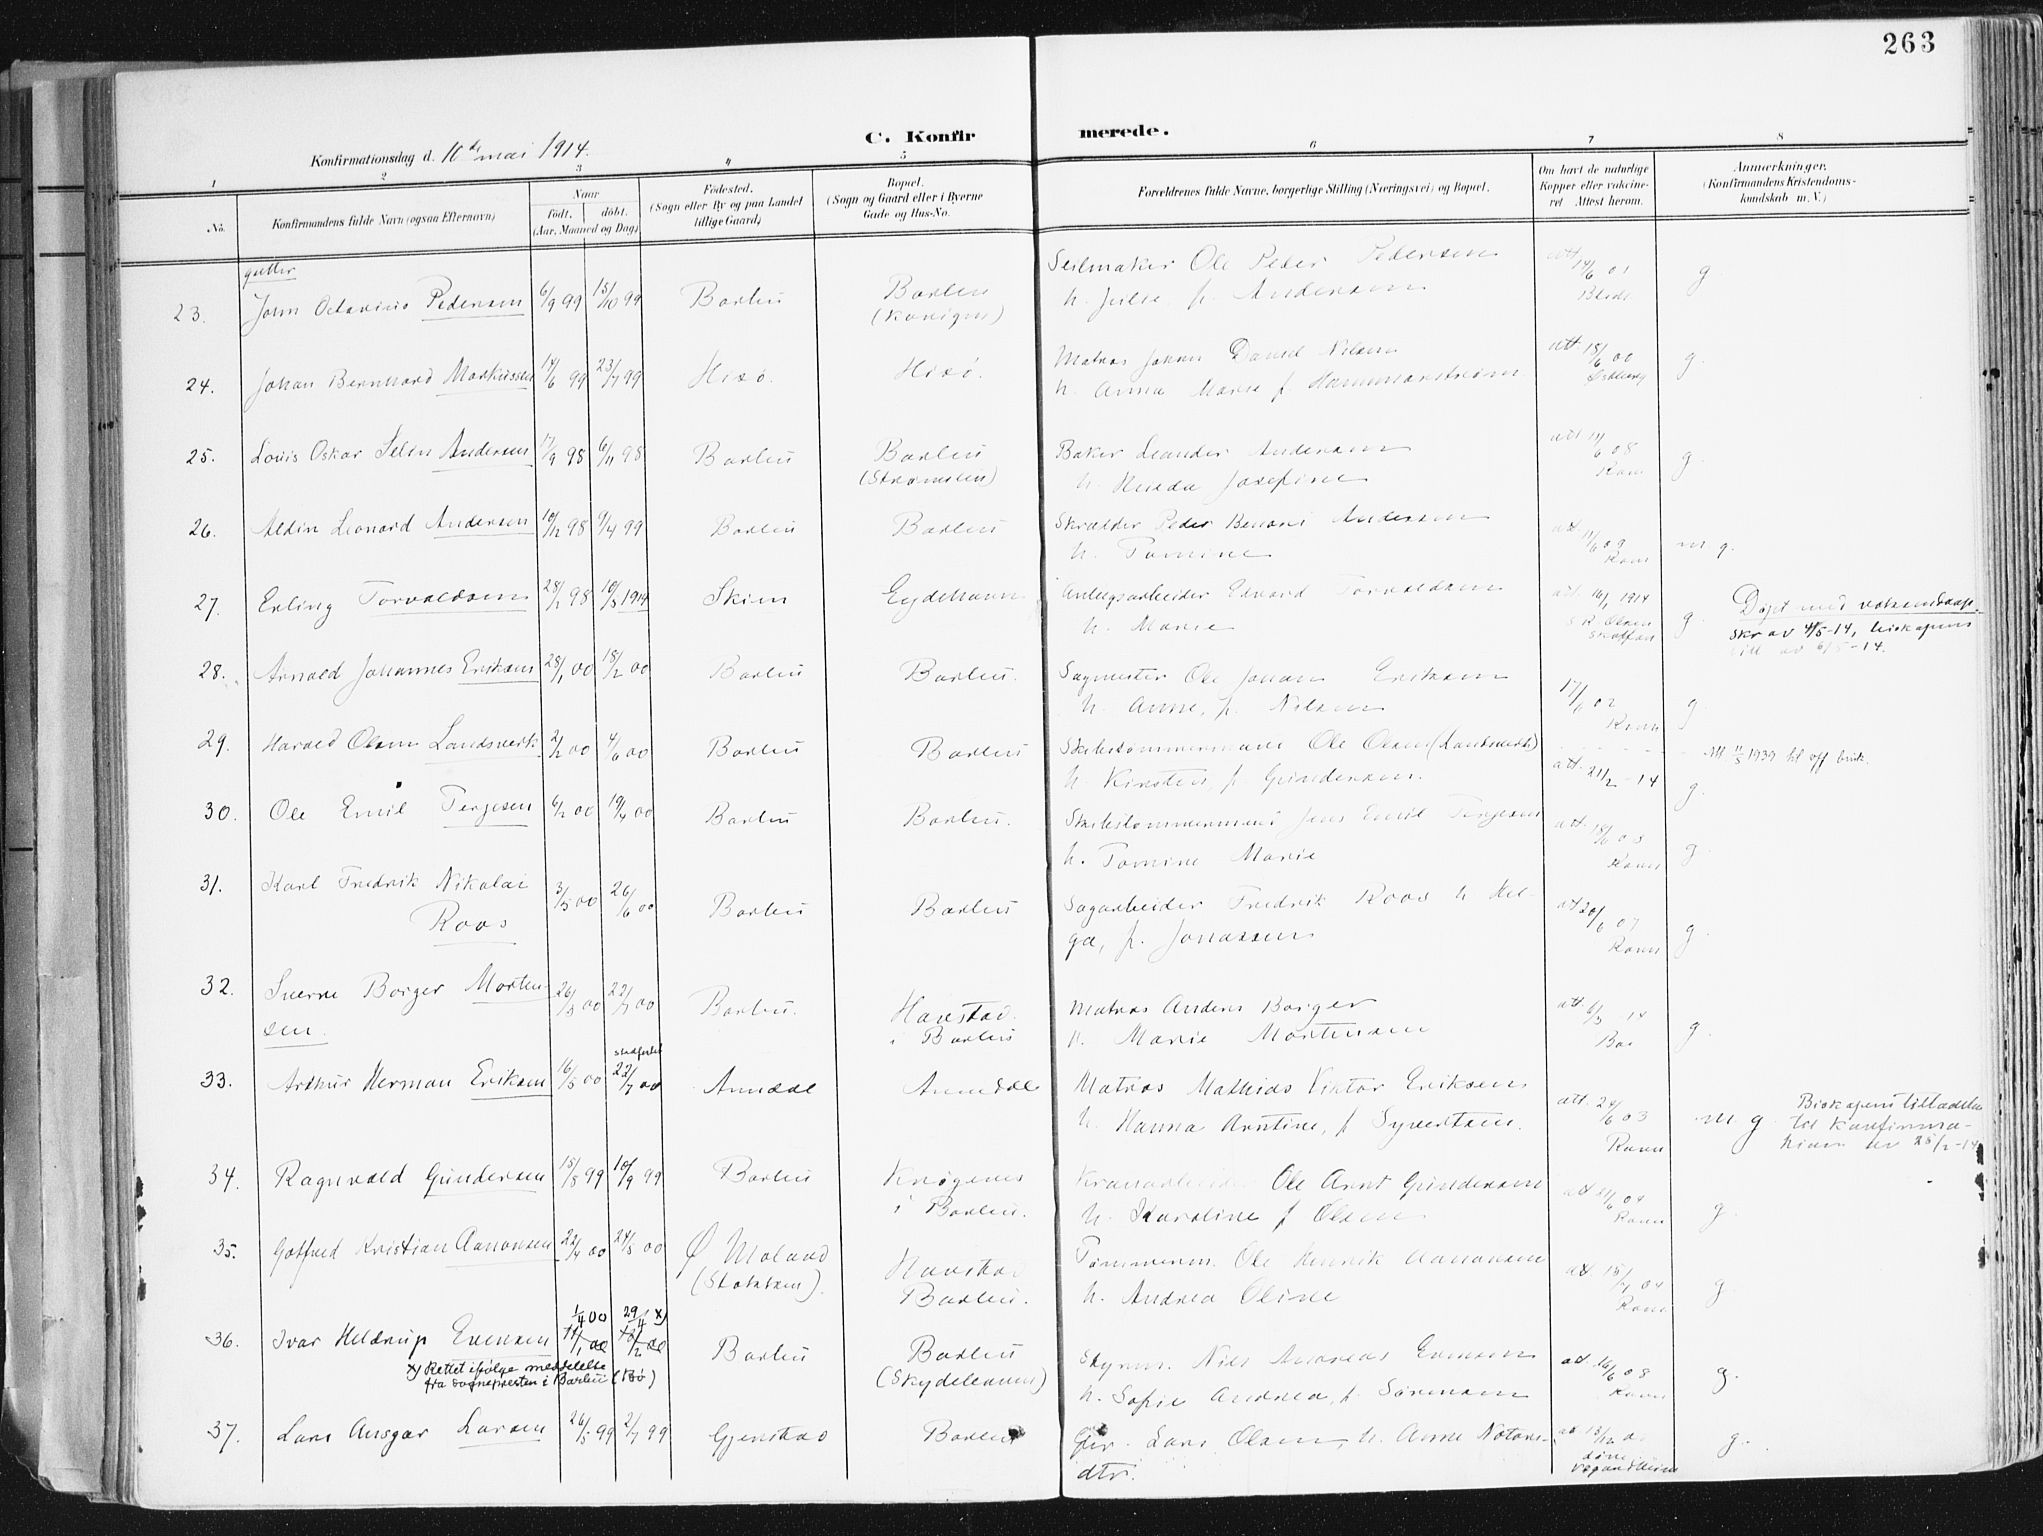 263
C. Konfirmerede.
Konfirmationsdag d. 10de mai 1914.
1 2 3 4 5 6 7 8
No.
Konfirmandens fulde Navn (ogsaa Efternavn)
Naar
født. døbt.
(Aar, Maaned og Dag)
Fødested.
(Sogn eller By og paa Landet
tillige Gaard)
Bopæl.
(Sogn og Gaard eller i Byerne
Gade og Hus-No.
Forældrenes fulde Navne, borgerlige Stilling (Næringsvei) og Bopæl.
Om havt de naturlige
Kopper eller vakcine-
ret Attest herom.
Anmærkninger.
(Konfirmandens Kristendoms-
kundskab m. V.)
gutter
23. John Octavius Pedersen 6/9 99 15/10 99 Barbu Barbu
Seilmaker Ole Peder Pedersen att 14/6 01 g
h. f. Andersen
24. Johan Bernhard Markussen 14/6 99 23/7 99 Hisø. Hisø.
Matros Johan David Nilsen att. 18/6 00 g.
h. Anna Marie f. Hammarstrøm
25. Louis Oskar Selin Andersen 17/9 98 6/11 98 Barbu Barbu
(Strømsbu)
Baker Leander Andersen att 11/6 08 Ravn g.
h. Josefine
26. Aldin Leonard Andersen 10/12 98 9/4 99 Barbu Barbu
Skrædder Peder Benoni Andersen att. 11/6 09 Ravn m g.
h. Tomine
27. Erling Torvaldsen 28/1 98 10/5 1914 Skien Eydehavn
Anlegsarbeider Edvard Torvaldsen att. 16/1 1914 g
h. Marie
Døpt med voksendaap.
skr av 4/5-14, biskopens
till av 6/5-14.
28. Arnold Johannes Eriksen 28/1 00 18/2 00 Barbu Barbu.
Sagmester Ole Johan Eriksen 17/6 02 Ravn g
h. Anne, f. Nilsen
29. Harald Olsen Landsverk 2/2 00 4/6 00 Barbu Barbu
Skibstømmermand Ole Olsen (Landsverk)
h. Kirsten, f. Gundersen. att. 21/2 - 14 g.
Att 11/5 1939 til off bruk.
30. Ole Emil Terjesen 6/2 00 19/4 00 Barbu Barbu.
Skibstømmermand Jens Emil Terjesen att. 18/6 03 Ravn g.
h. Tomine Marie
31. Karl Fredrik Nikolai
Roos 3/5 00 26/6 00 Barbu Barbu
Sagarbeider Fredrik Roos h Hel-
ga, f. Jonassen att 20/6 07 Ravn g.
32. Sverre Borger Morten-
sen. 26/3 00 22/7 00 Barbu. Havstad.
i Barbu
Matros Anders Borger att. 6/3 - 14 g.
h. Marie Mortensen
33. Arthur Herman Eriksen 16/5 00 stadfestet 22/7 00 Arendal Arendal
Matros Mathias Viktor Eriksen
h. Hanna Arntine, f Syvertsen. att. 24/6 03 Ravn m g
Biskopens tilladelse
til konfirma-
tion av 28/2-14
34. Ragnvald Gundersen 15/8 99 10/9 99 Barbu Krøgenes
i Barbu.
Kranarbeider Ole Arnt Gundersen att 21/6 04 Ravn g.
h. Karoline f Olsen
35. Gotfred Kristian Aanonsen 22/4 00 24/5 00 Ø Moland
(Stokken). Havstad
Barbu.
Tømmerm. Ole Henrik Aanonsen att. 18/7 04 Ravn g.
h. Andrea Oline
36. Ivar Heldrup Evensen 1/4 00 29/4 x) Barbu Barbu
(Skydebanen)
x) Rettet ifølge meddelelse
fra sognepresten i Barbu (Bø)
Styrm. Nils Andreas Evensen att. 16/6 08 Ravn g.
h. Sofie Andrea, f. Sørensen
37. Lars Ansgar Larsen 26/5 99 2/7 99 Gjerstad Barbu
Gbr. Lars Olsen, h. Anne Notons-
dtr. g.